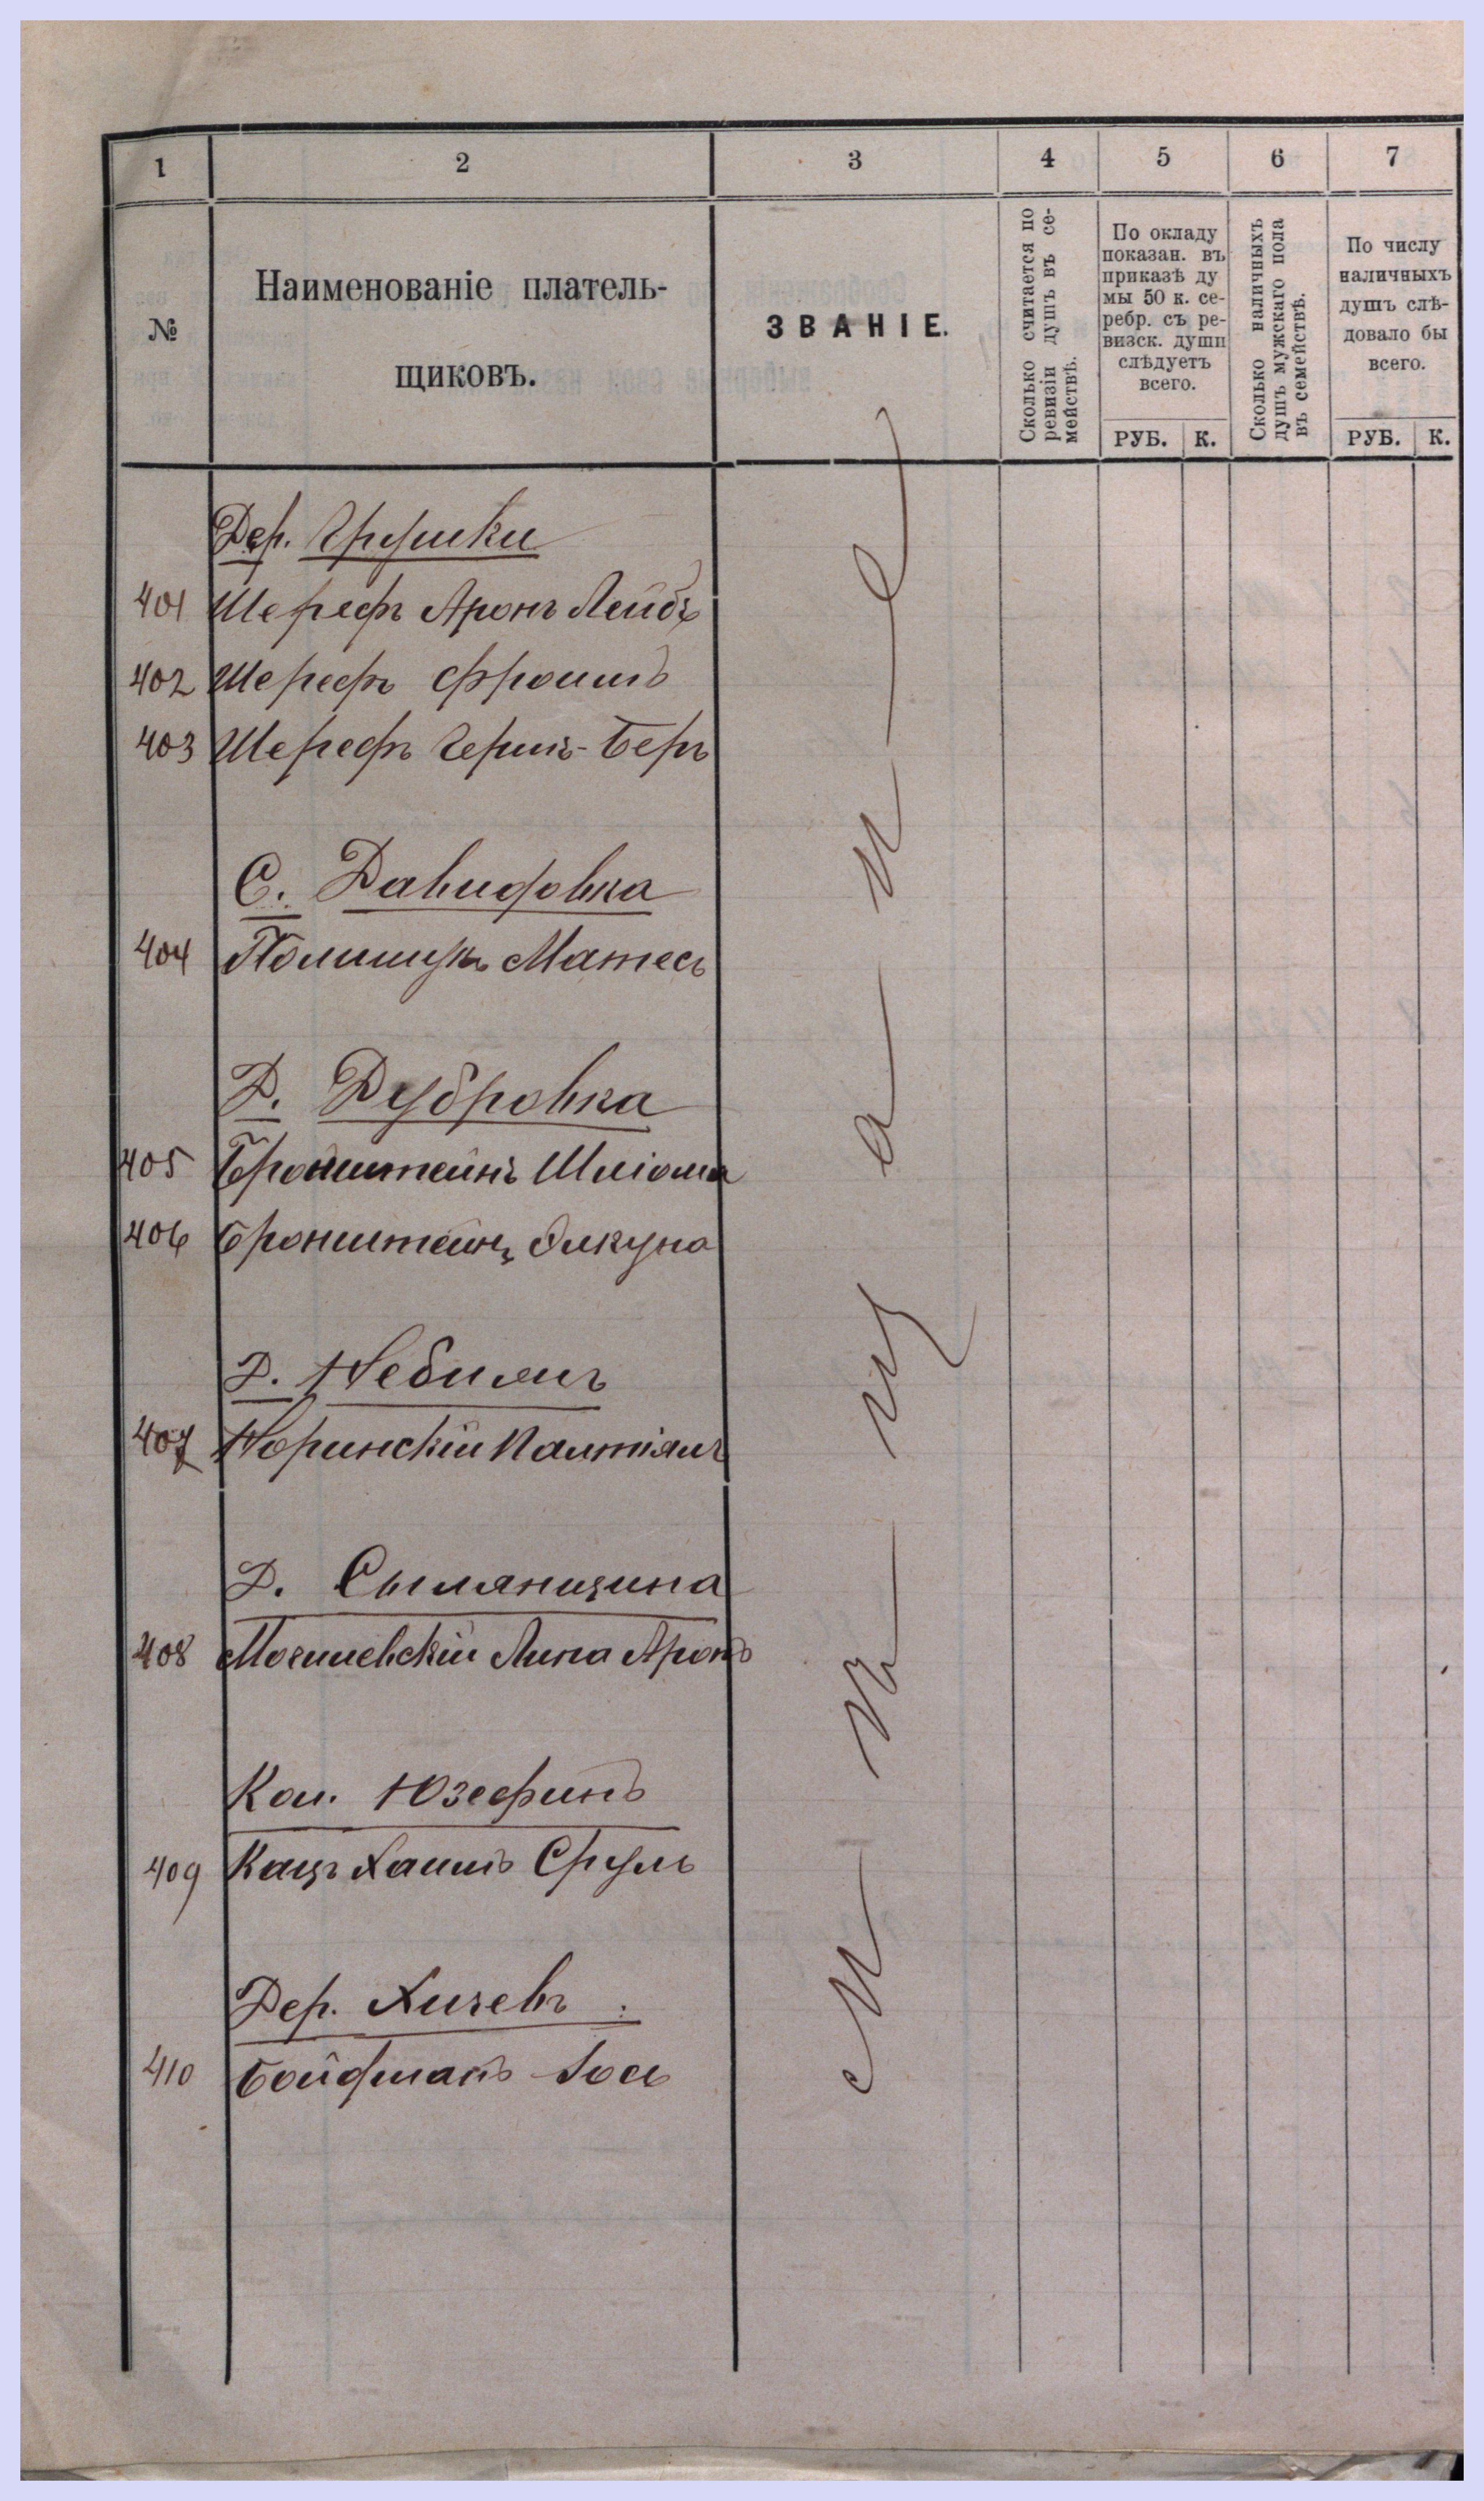 1 2 3 4 5 6 7
№
Наименованіе платель-
щиковъ.
ЗВАНІЕ.
Сколько считается по
ревизіи душъ въ се-
мействѣ.
По окладу
показан. въ
приказѣ ду
мы 50 к. се-
ребр. съ ре-
визск. души
слѣдуетъ
всего.
РУБ. К.
Сколько наличныхъ
душъ мужскаго пола
въ семействѣ.
По числу
наличныхъ
душъ слѣ-
довало бы
всего.
РУБ. К.
Дер.
401 Шерефъ Аронъ Лейбъ
402 Шерефъ Фроимъ
403 Шерефъ Гершъ-Беръ
С. Давидовка
404 Полищукъ Матесъ
Д. Дубровка
405 Бронштейнъ Шліома
406 Бронштейнъ Элкуна
Д. Небижъ
407 Норинскій Палтіялъ
Д. Сымянщина
408 Могилевскій Липа Аронъ
Кол. Юзефинъ
409 Кацъ Хаимъ Сруль
Дер. Хичевъ
410 Бойдманъ Іось
мѣщане